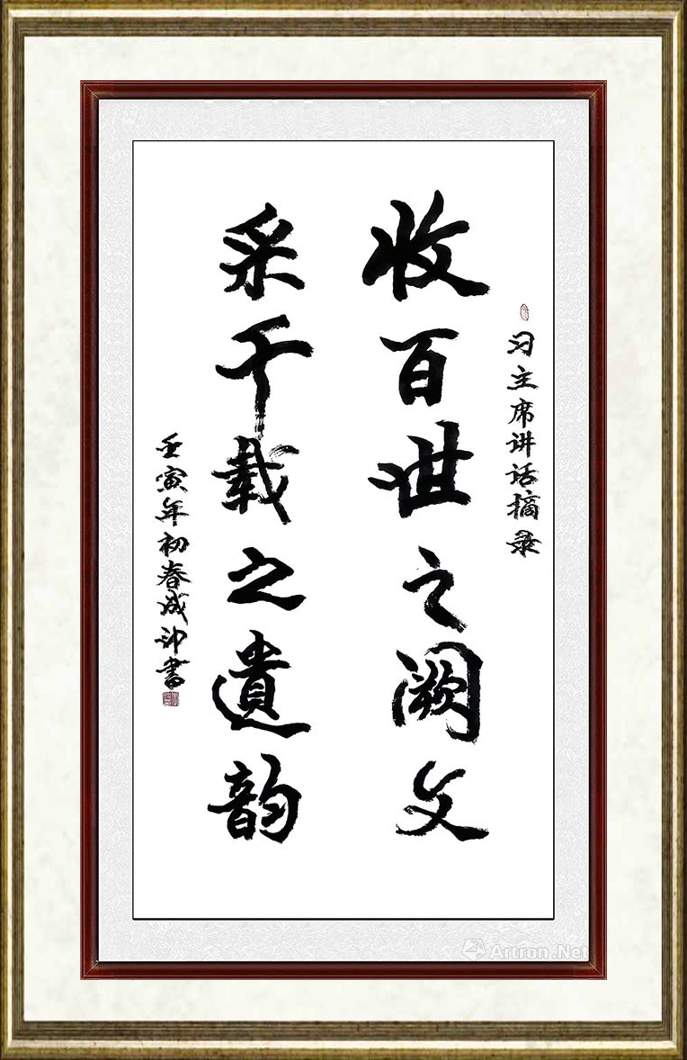 习主席讲话摘录
收百世之阙文
采千载之遗韵
壬寅年初春成訷書
Artron.Net